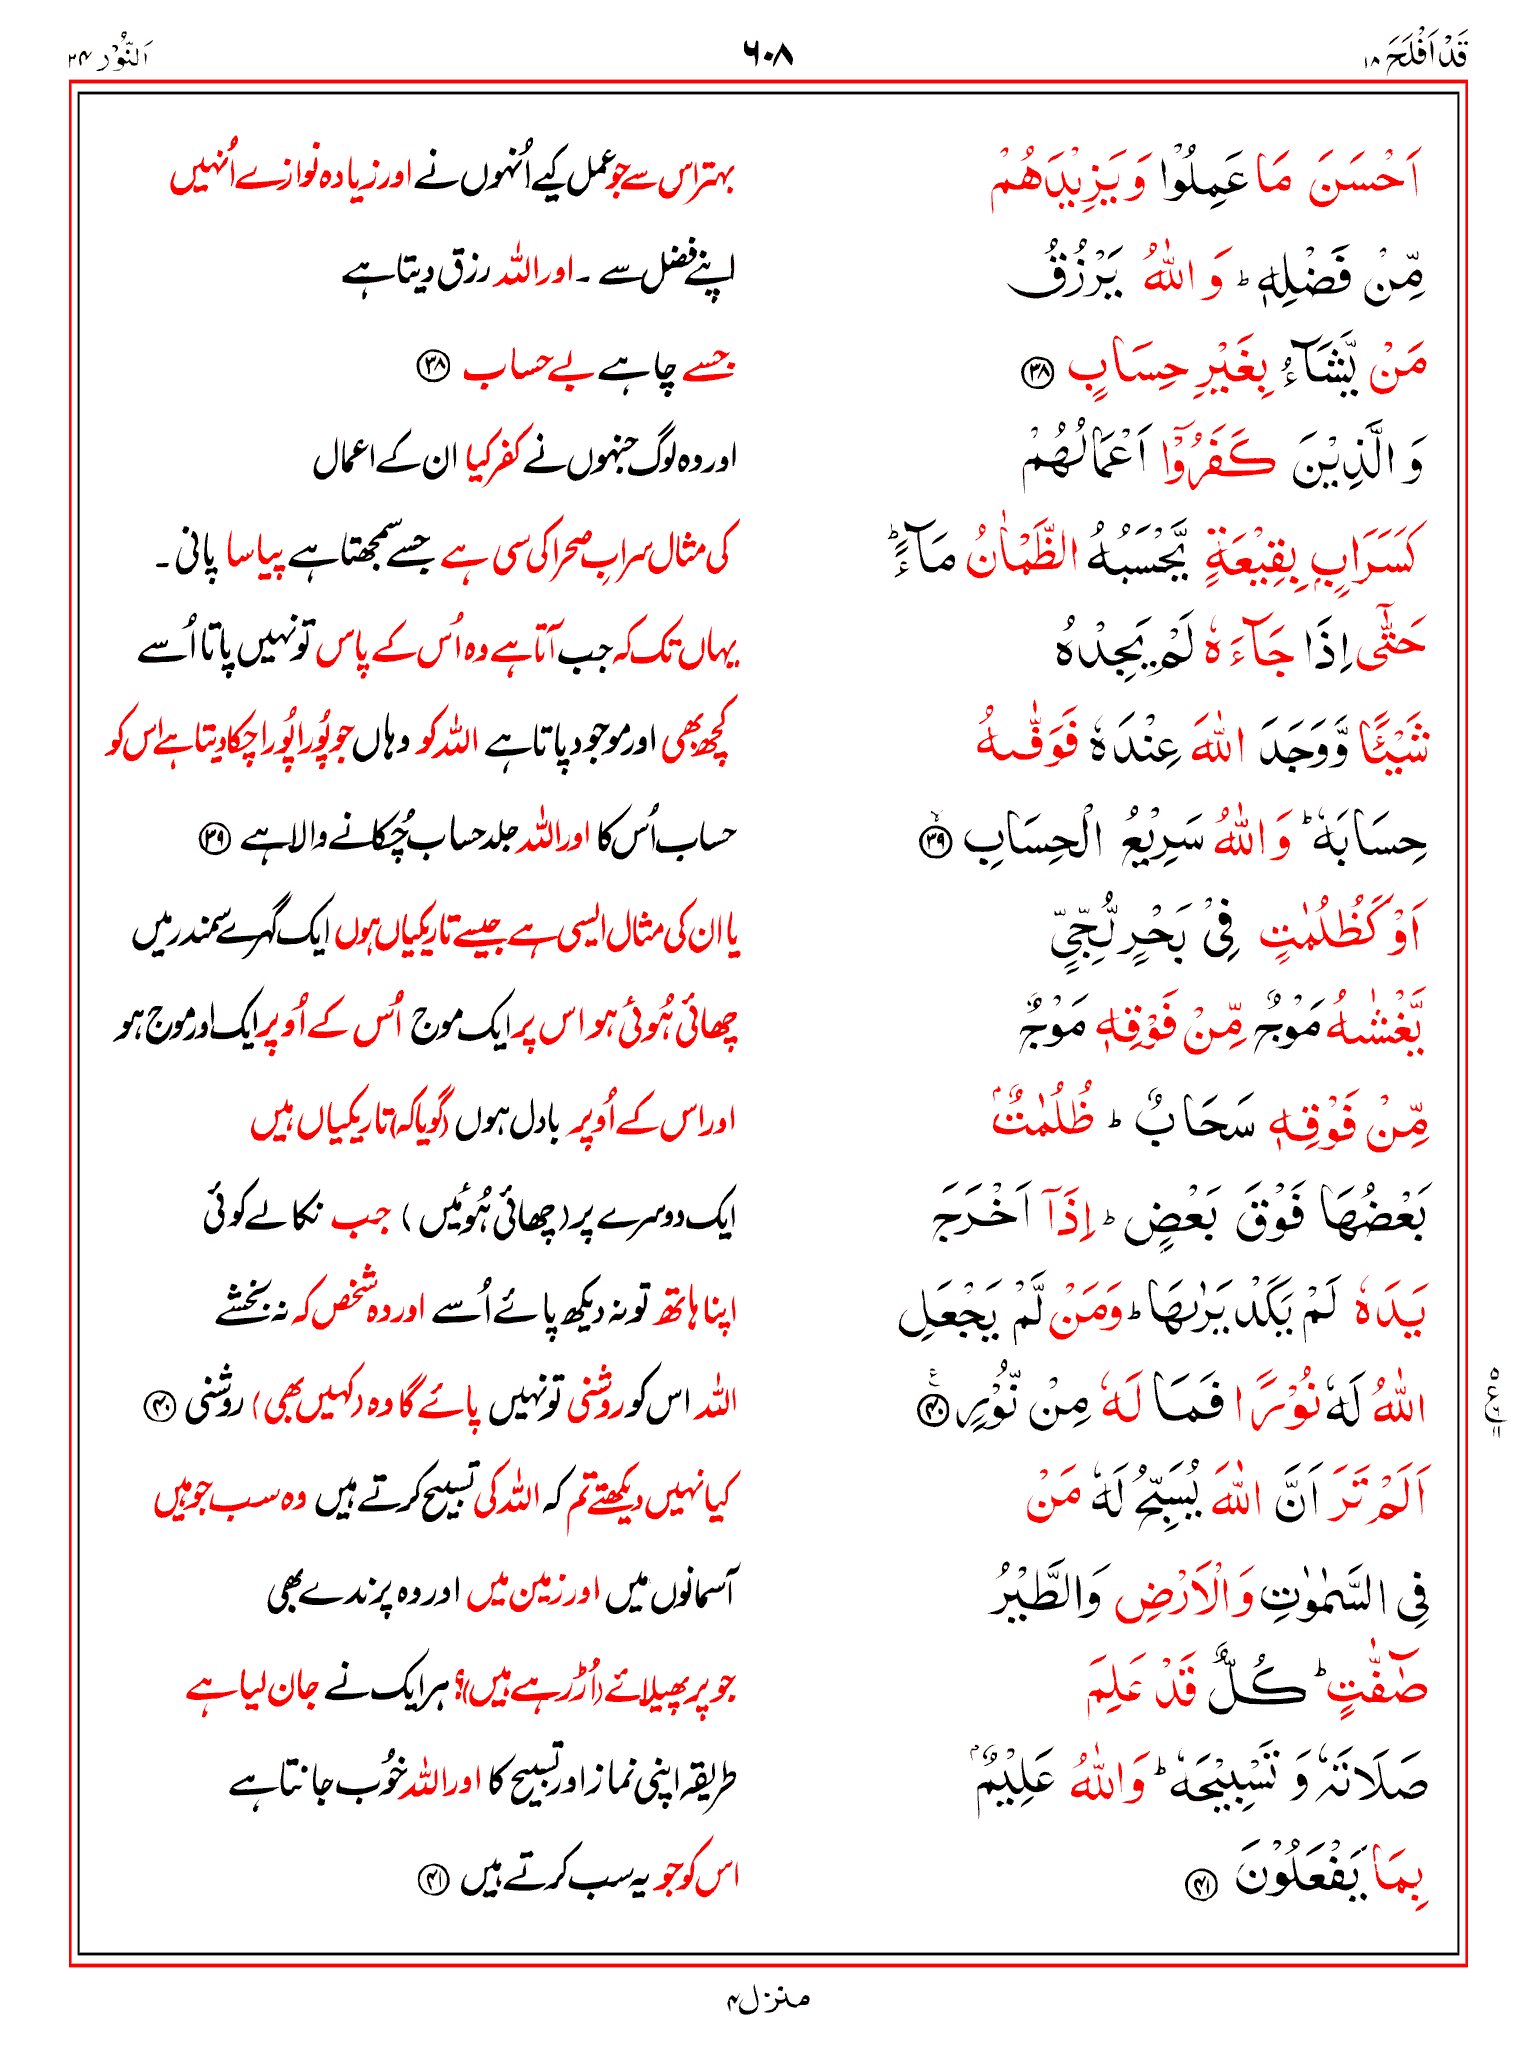 قَدْ اَفْلَحَ ۱۸
۶۰۸
اَلنُّوْر ۲۴
اَحْسَنَ مَا عَمِلُوْا وَ يَزِيْدَهُمْ
بہتر اس سے جو عمل کیے اُنہوں نے اور زیادہ نوازے اُنہیں
مِّنْ فَضْلِهٖ ؕ وَ اللّٰهُ يَرْزُقُ
اپنے فضل سے ۔ اور اللہ رزق دیتا ہے
مَنْ يَّشَآءُ بِغَيْرِ حِسَابٍ ﴿۳۸﴾
جسے چاہے بے حساب ﴿۳۸﴾
وَ الَّذِيْنَ كَفَرُوْۤا اَعْمَالُهُمْ
اور وہ لوگ جنہوں نے کفر کیا ان کے اعمال
كَسَرَابٍۭ بِقِيْعَةٍ يَّحْسَبُهُ الظَّمْاٰنُ مَآءً ؕ
کی مثال سرابِ صحرا کی سی ہے جسے سمجھتا ہے پیاسا پانی ۔
حَتّٰٓى اِذَا جَآءَهٗ لَمْ يَجِدْهُ
یہاں تک کہ جب آتا ہے وہ اُس کے پاس تو نہیں پاتا اُسے
شَيْـًٔا وَّ وَجَدَ اللّٰهَ عِنْدَهٗ فَوَفّٰىهُ
کچھ بھی اور موجود پاتا ہے اللہ کو وہاں جو پُورا پُورا چکا دیتا ہے اس کو
حِسَابَهٗ ؕ وَ اللّٰهُ سَرِيْعُ الْحِسَابِ ﴿۳۹﴾
حساب اُس کا اور اللہ جلد حساب چُکانے والا ہے ﴿۳۹﴾
اَوْ كَظُلُمٰتٍ فِيْ بَحْرٍ لُّجِّيٍّ
یا ان کی مثال ایسی ہے جیسے تاریکیاں ہوں ایک گہرے سمندر میں
يَّغْشٰىهُ مَوْجٌ مِّنْ فَوْقِهٖ مَوْجٌ
چھائی ہُوئی ہو اس پر ایک موج اُس کے اُوپر ایک اور موج ہو
مِّنْ فَوْقِهٖ سَحَابٌ ؕ ظُلُمٰتٌۢ
اور اس کے اُوپر بادل ہوں (گویا کہ) تاریکیاں ہیں
بَعْضُهَا فَوْقَ بَعْضٍ ؕ اِذَاۤ اَخْرَجَ
ایک دوسرے پر (چھائی ہُوئیں) جب نکالے کوئی
يَدَهٗ لَمْ يَكَدْ يَرٰىهَا ؕ وَ مَنْ لَّمْ يَجْعَلِ
اپنا ہاتھ تو نہ دیکھ پائے اُسے اور وہ شخص کہ نہ بخشے
اللّٰهُ لَهٗ نُوْرًا فَمَا لَهٗ مِنْ نُّوْرٍ ﴿۴۰﴾
اللہ اس کو روشنی تو نہیں پائے گا وہ (کہیں بھی) روشنی ﴿۴۰﴾
اَلَمْ تَرَ اَنَّ اللّٰهَ يُسَبِّحُ لَهٗ مَنْ
کیا نہیں دیکھتے تم کہ اللہ کی تسبیح کرتے ہیں وہ سب جو ہیں
فِي السَّمٰوٰتِ وَ الْاَرْضِ وَ الطَّيْرُ
آسمانوں میں اور زمین میں اور وہ پرندے بھی
صٰٓفّٰتٍ ؕ كُلٌّ قَدْ عَلِمَ
جو پر پھیلائے (اُڑ رہے ہیں)؟ ہر ایک نے جان لیا ہے
صَلَاتَهٗ وَ تَسْبِيْحَهٗ ؕ وَ اللّٰهُ عَلِيْمٌۢ
طریقہ اپنی نماز اور تسبیح کا اور اللہ خُوب جانتا ہے
بِمَا يَفْعَلُوْنَ ﴿۴۱﴾
اس کو جو یہ سب کرتے ہیں ﴿۴۱﴾
منزل ۴